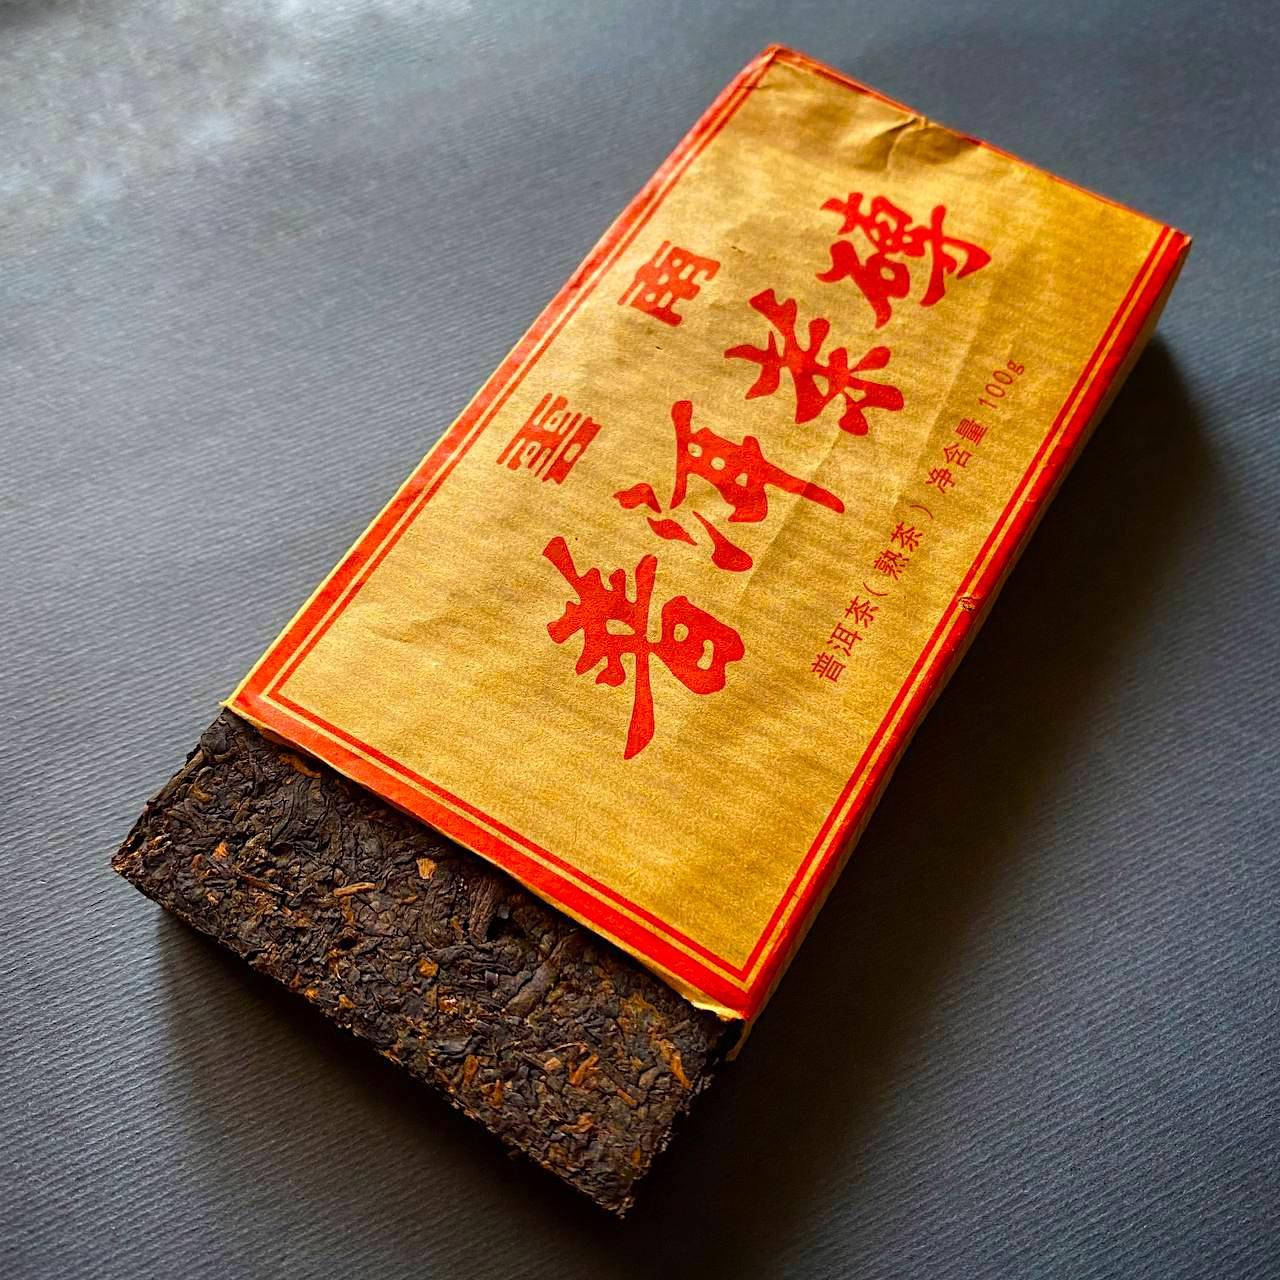 雲南
普洱茶磚
普洱茶(熟茶) 净含量 100g